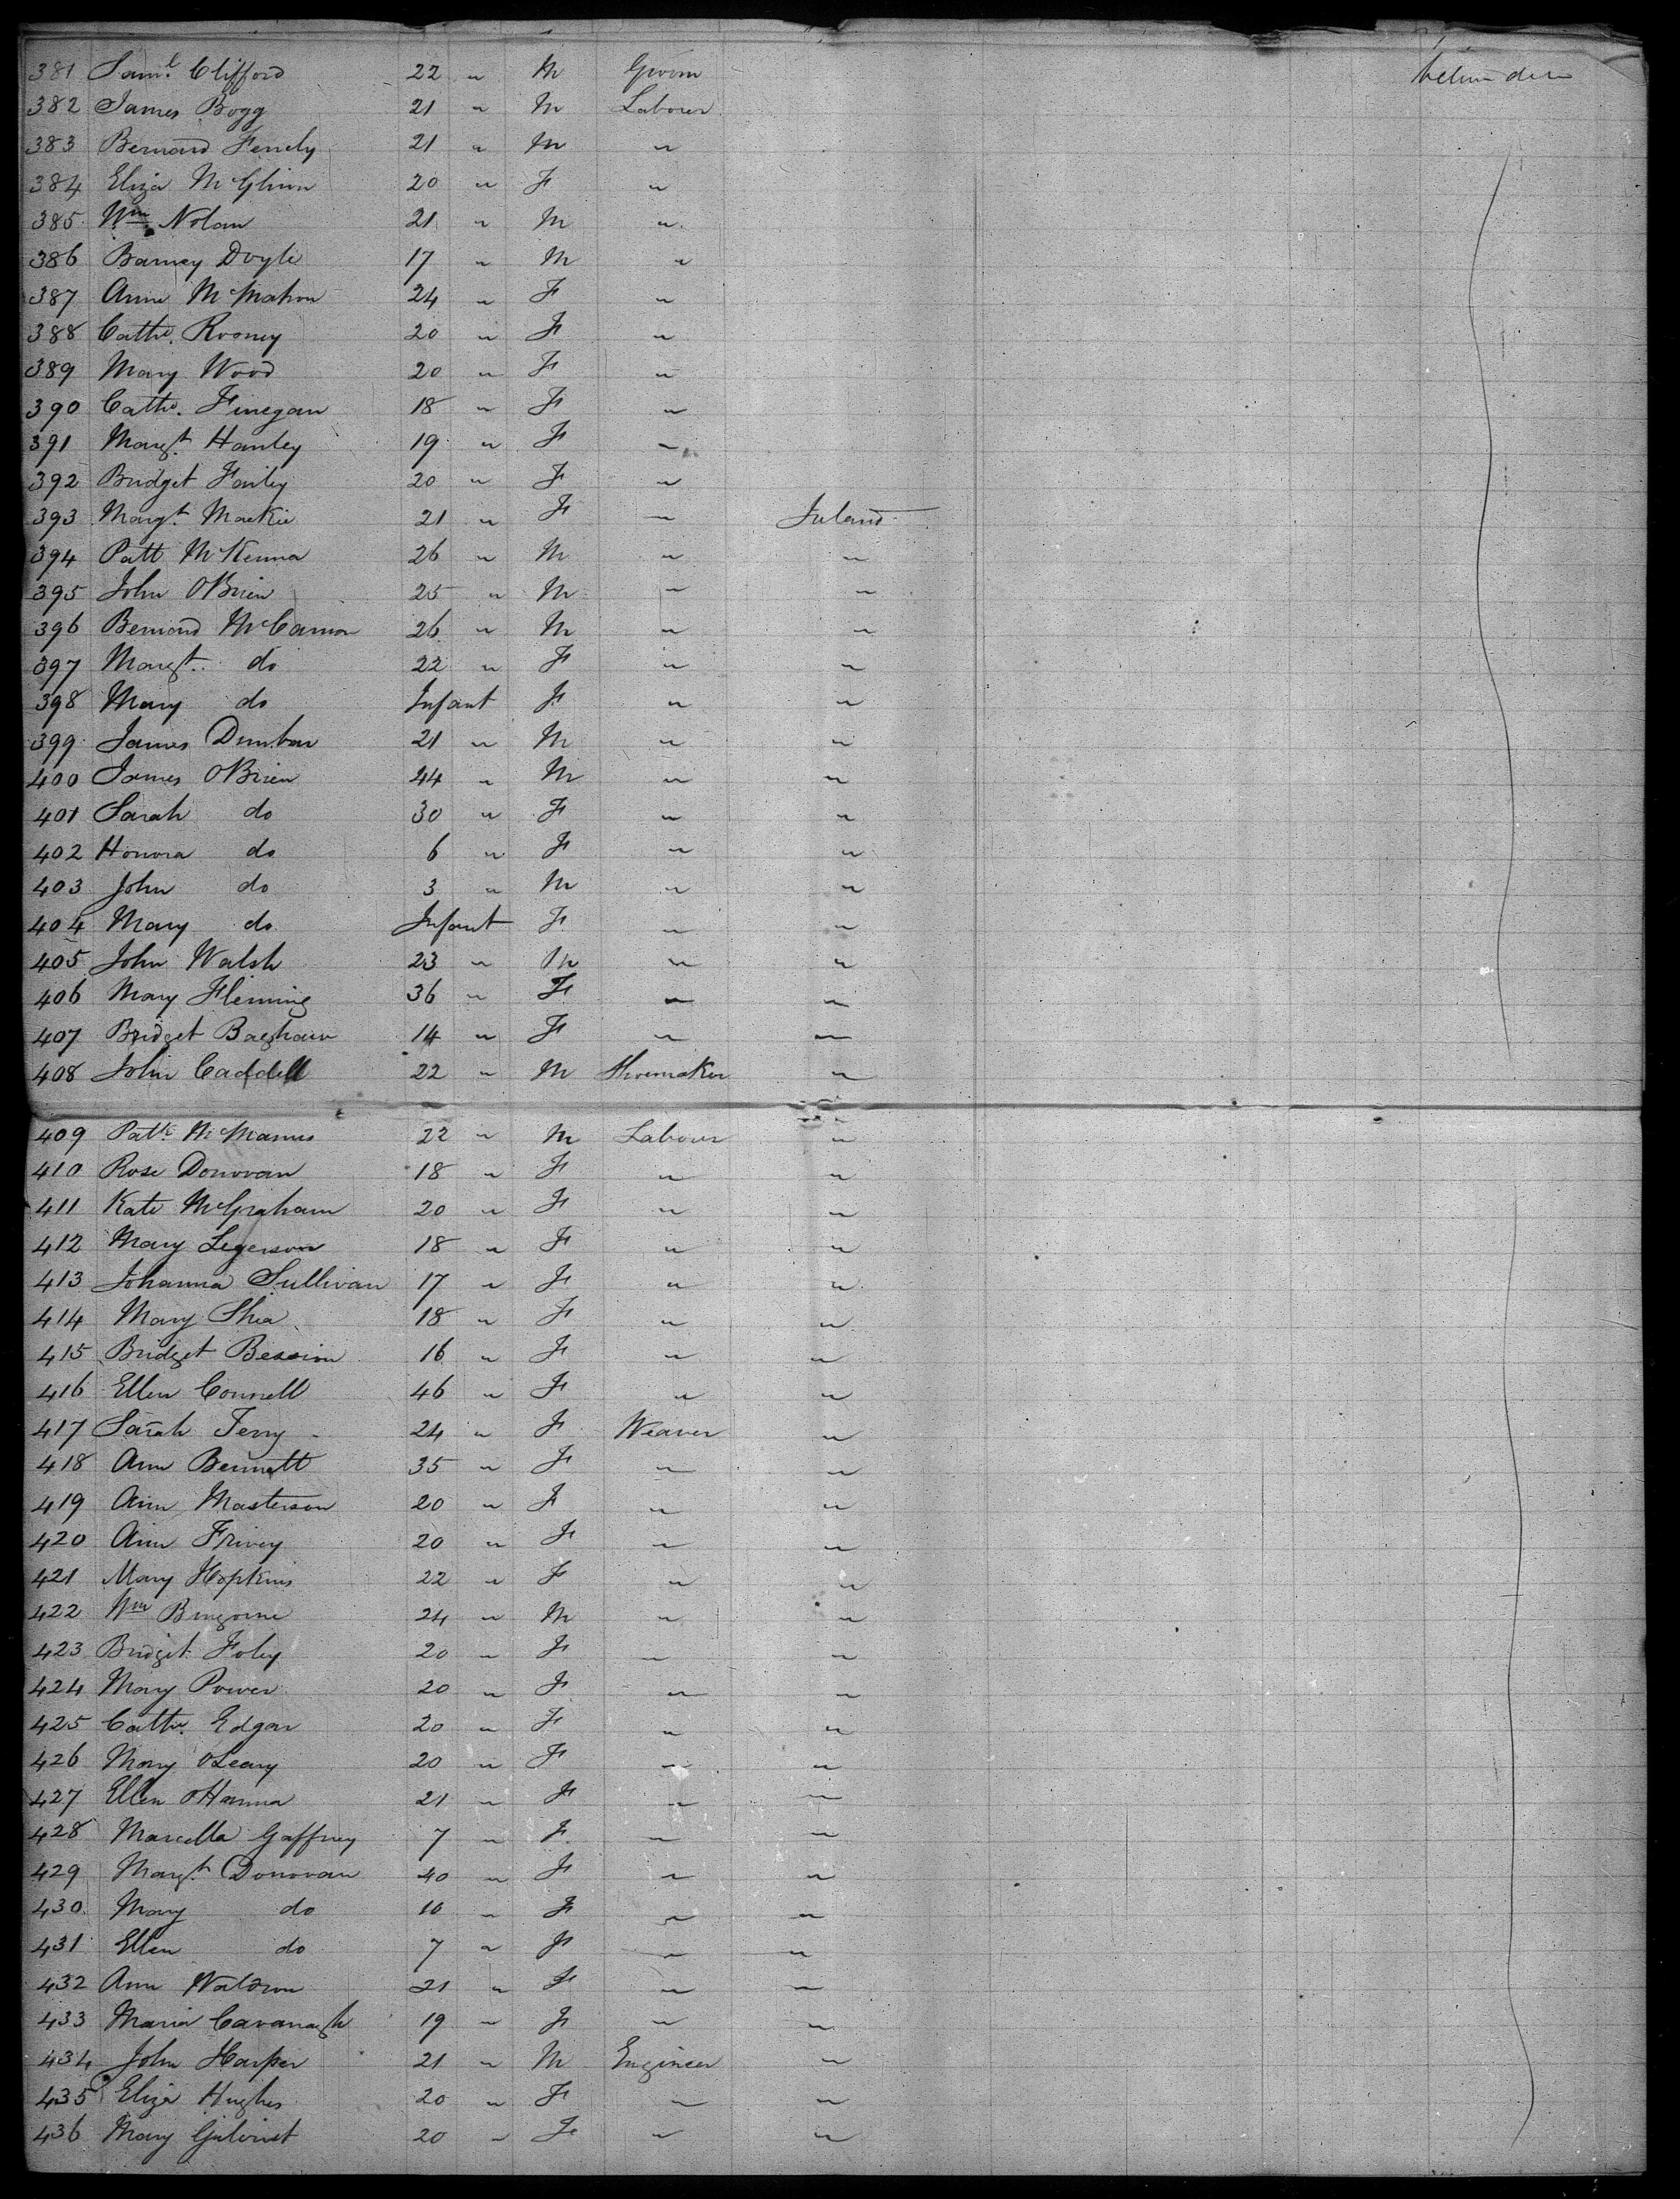 381 Saml. Clifford 22 " M Groom
382 James Bogg 21 " M Labour
383 Bernard 21 " M "
384 Eliza McGlinn 20 " F "
385 Wm Nolan 21 " M "
386 Barney Doyle 17 " M "
387 Ann McMahon 24 " F "
388 Cathe. Rooney 20 " F "
389 Mary Wood 20 " F "
390 Cathe. Finegan 18 " F "
391 Margt. Hanley 19 " F "
392 Bridget Farley 20 " F "
393 Margt. Mackie 21 " F " Ireland
394 Patt McKenna 26 " M " "
395 John OBrien 25 " M " "
396 Bernard McCamon 26 " M " "
397 Margt. do 22 " F " "
398 Mary do Infant F " "
399 James Dunbar 21 " M " "
400 James OBrien 44 " M " "
401 Sarah do 30 " F " "
402 Honora do 6 " F " "
403 John do 3 " M " "
404 Mary do Infant F " "
405 John Walsh 23 " M " "
406 Mary Fleming 36 " F " "
407 Bridget 14 " F " "
408 John Caddell 22 " M Shoemaker "
409 Patk. McManus 22 " M Labour "
410 Rose Donovan 18 " F " "
411 Kate McGraham 20 " F " "
412 Mary Legerson 18 " F " "
413 Johanna Sullivan 17 " F " "
414 Mary Shea 18 " F " "
415 Bridget 16 " F " "
416 Ellen Connell 46 " F " "
417 Sarah Terry 24 " F Weaver "
418 Ann Bennett 35 " F " "
419 Ann Masterson 20 " F " "
420 Ann 20 " F " "
421 Mary Hopkins 22 " F " "
422 Wm 24 " M " "
423 Bridget Foley 20 " F " "
424 Mary Power 20 " F " "
425 Cathe. Edgar 20 " F " "
426 Mary OLeary 20 " F " "
427 Ellen OHanna 21 " F " "
428 Marcella Gaffney 7 " F " "
429 Margt. Donovan 40 " F " "
430 Mary do 10 " F " "
431 Ellen do 7 " F " "
432 Ann Waldron 21 " F " "
433 Maria Cavanagh 19 " F " "
434 John Harper 21 " M Engineer "
435 Eliza Hughes 20 " F " "
436 Mary 20 " F " "